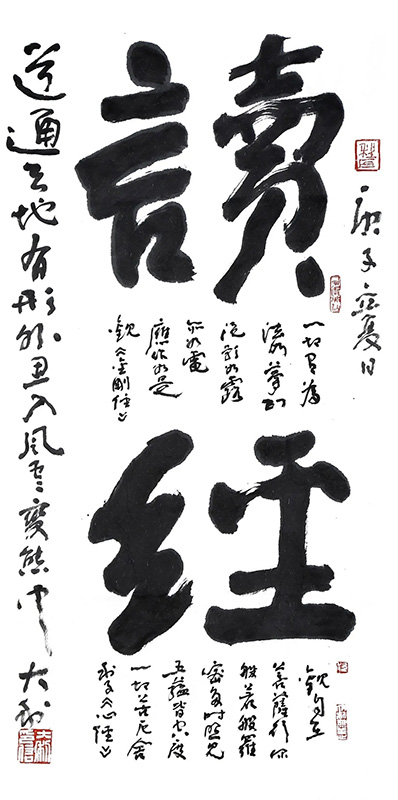 讀經
庚子立夏日
一切有為
法如夢幻
泡影如露
亦如電
應作如是
觀《金剛經》
觀自在
菩薩行深
般若般羅
密多時照見
五蘊皆空度
一切苦厄舍
利子《心經》
道通天地有形外思入風雲變態中